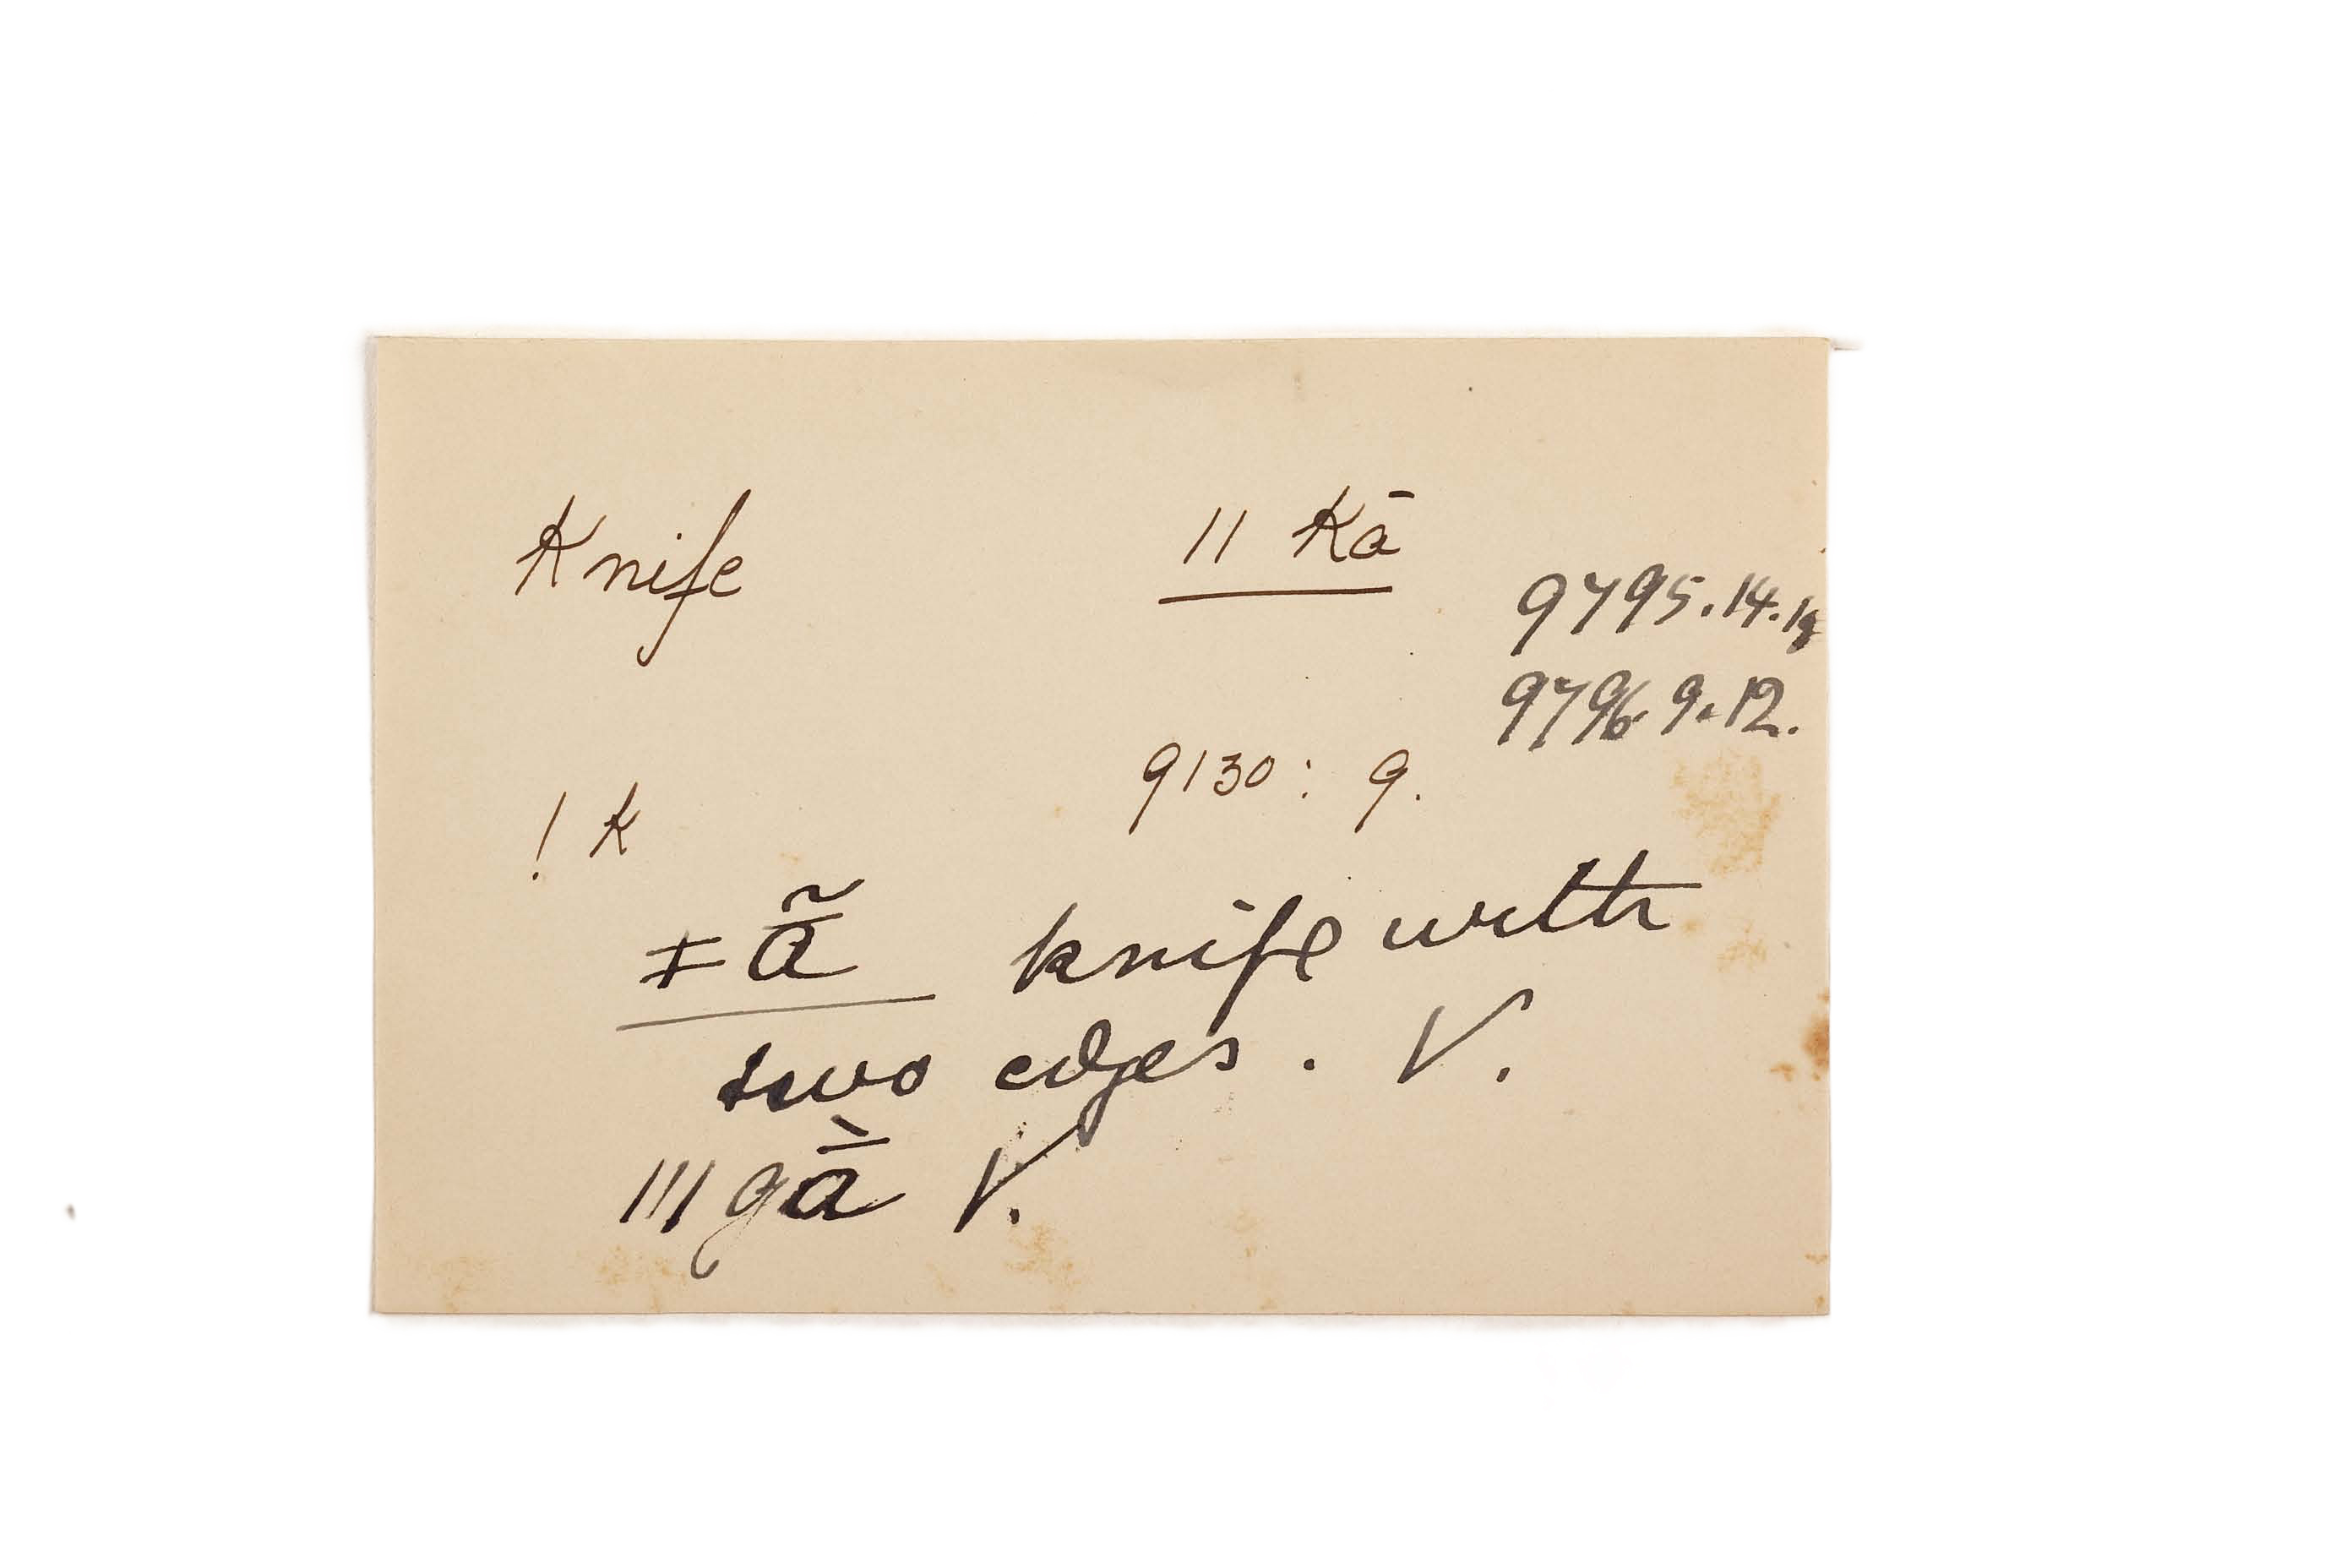 Knife ǁ Kā
9795.14.
9796. 9.12.
9130: 9.
! K
ǂ ā̃ knife with
two edges. V.
/// gā̀ V.